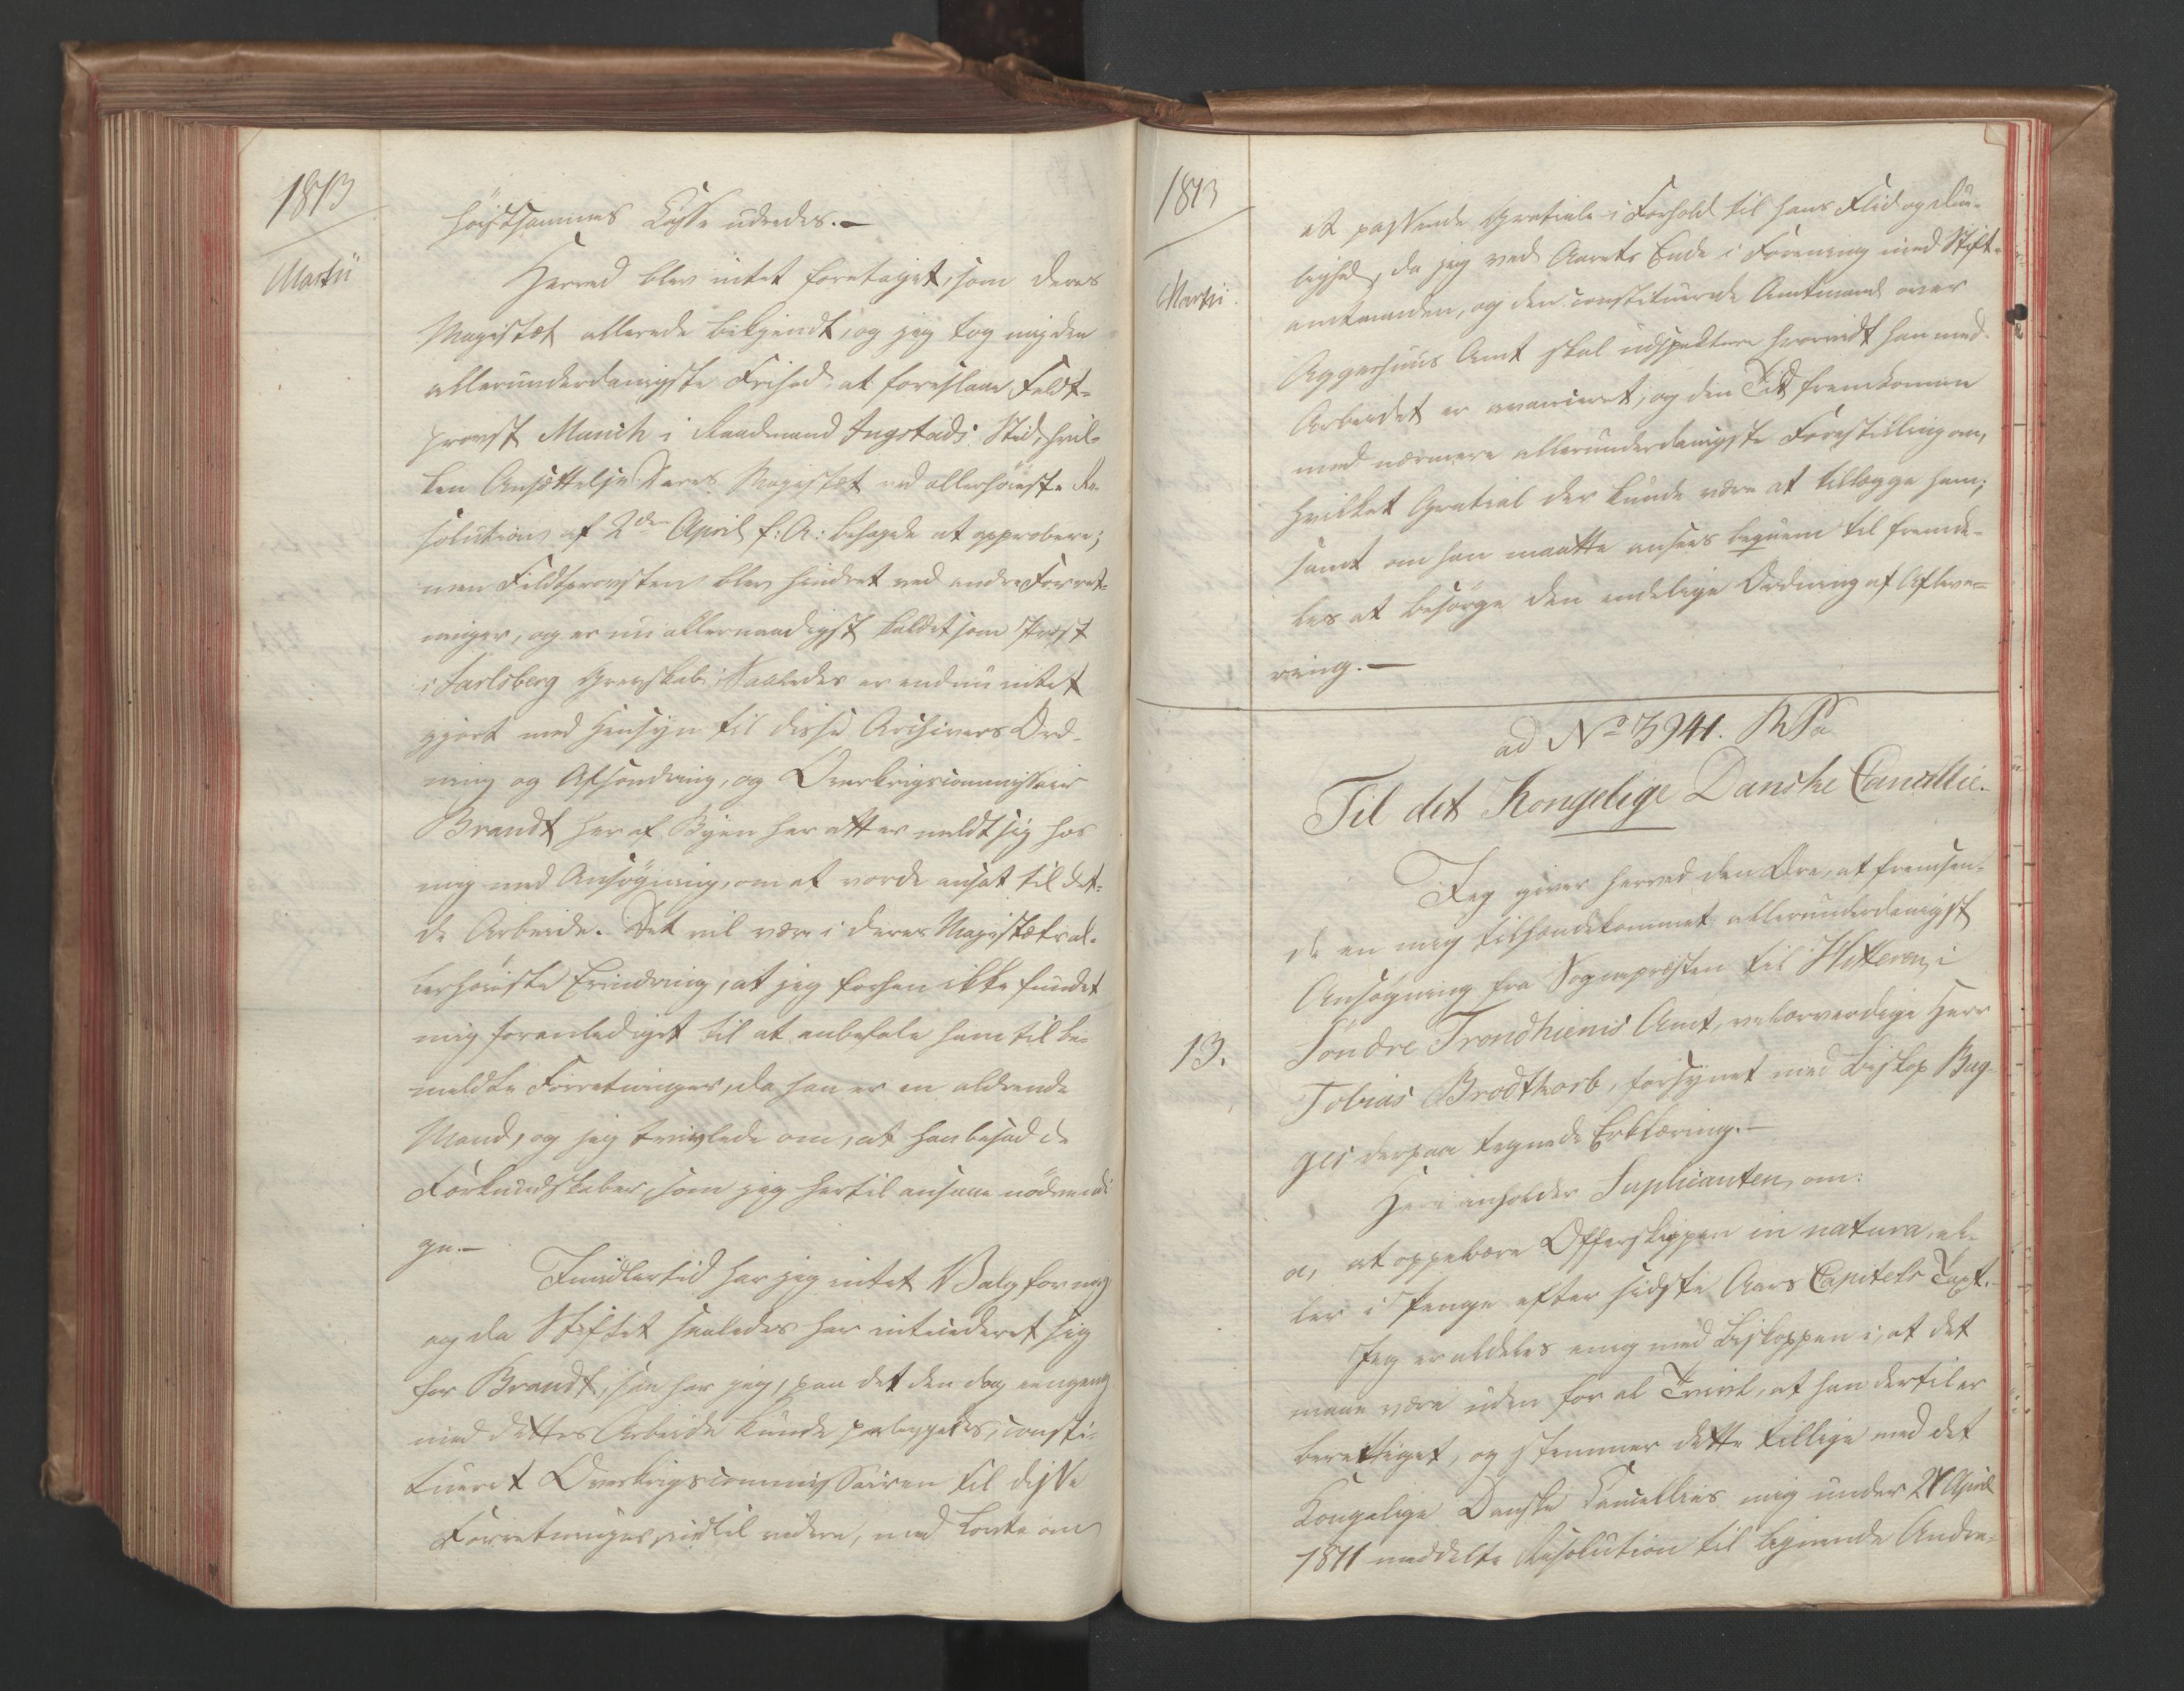 1813
Martii
høistsammes Casse udredes.—
Herved blev intet foretaget, som Deres
Majestæt allerede bekjendt, og jeg tog mig den
allerunderdanigste Frihed, at foreslaae Feldt-
provst Munch i Raadmand Ingstads Sted, hvil-
ken Ansættelse Deres Majestæt ved allerhøieste Re-
solution af 2den April f: A: behagede at approbere;
men Feldtprovsten blev hindret ved andre Forret-
ninger, og er nu allernaadigst kaldet som Præst
i Jarlsberg Grevskab. Saaledes er endnu intet
gjort med Hensyn til disse Archivers Ord-
ning og Afsondring, og Overkrigscommissair
Brandt her af Byen har atter meldt sig hos
mig med Ansøgning, om at vorde ansat til det-
te Arbeide. Det vil være i Deres Majestæts al-
lerhøieste Erindring, at jeg forhen ikke fandt
mig foranlediget til at anbefale ham til be-
meldte Forretninger, da han er en aldrende
Mand, og jeg tvivlede om, at han besad de
Forkundskaber, som jeg hertil ansaae nødvendi
ge.—
Imidlertid har jeg intet Valg for mig
og da Stiftet saaledes har interederet sig
for Brandt, saa har jeg, paa det den dog eengang
med dettes Arbeide kunde paabegyndes, consti-
tueret Overkrigscommissairen til disse
Forretninger indtil videre, med Løvte om
1813
Martii.
et passende Gratiale i Forhold til hans Flid og Due-
lighed, da jeg ved Aarets Ende i Forening med Stift-
amtmanden, og den constituerede Amtmand over
Aggershuus Amt skal inspektere hvorvidt han med
Arbeidet er avanceret, og den Tid fremkomme
med nærmere allerunderdanigste Forestilling om,
hvilket Gratial der kunde være at tillægge ham;
samt om han maatte ansees beqvem til fremde-
les at besørge den endelige Ordning af Afleve-
ring.—
ad No 3941. B Pa
Til det Kongelige Danske Cancellie.
Jeg giver herved den Ære, at fremsen-
de en mig tilhændekommet allerunderdanigst
Ansøgning fra Sognepræsten til Hitteren i
13.
Søndre Trondhiems Amt, velærværdige Herr
Tobias Brodtkorb, forsynet med Biskop Bug-
ges derpaa tegnede Erklæring.—
Heri anholder Suplicanten om:
a, at oppebære Offerskjeppen in natura, el-
ler i Penge efter sidste Aars Capitels Taxt.
Jeg er aldeles enig med Biskoppen i, at det
maae være uden for al Tvivl, at han dertil er
berettiget, og stemmer dette tillige med det
Kongelige Danske Cancellies mig under 27 April
1811 meddelte Resolution til lignende Andra-